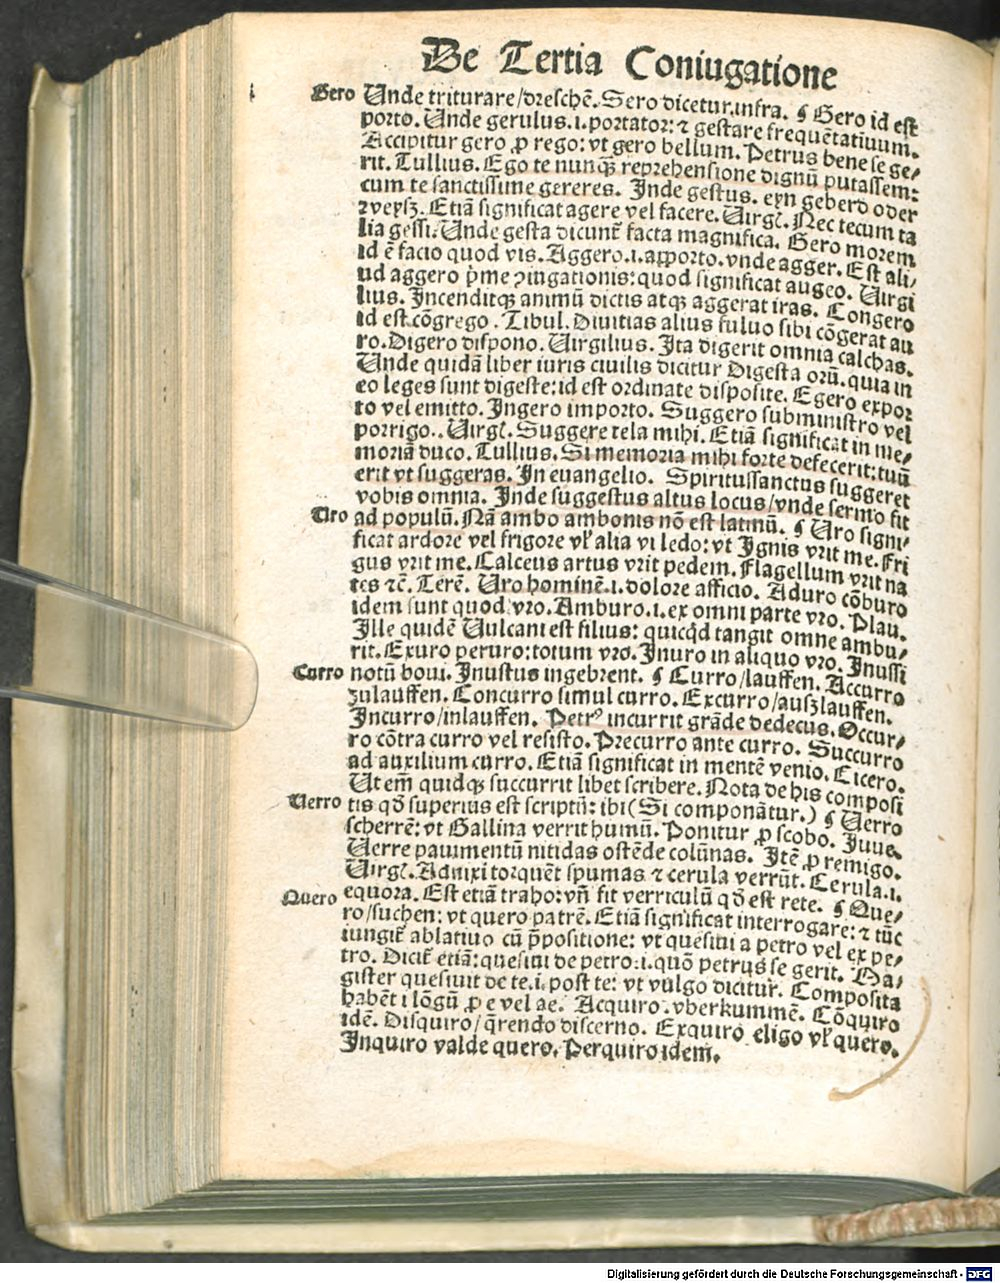 De Tertia Coniugatione
Gero Unde triturare/dreschē. Sero dicetur.infra. ¶ Gero id est
porto. Unde gerulus.i.portator: ⁊ gestare frequētatiuum.
Accipitur gero ꝓ rego: vt gero bellum. Petrus bene se ge/
rit. Tullius. Ego te nunqꝫ reprehensione dignū putassem:
cum te sanctissime gereres. Inde gestus. eyn geberd oder
Etiā significat agere vel facere. Uirgꝉ. Nec tecum ta
lia gessi. Unde gesta dicunt̄ facta magnifica. Gero morem
id ē facio quod vis. Aggero.i.apporto. vnde agger. Est ali/
ud aggero p̄me ꝯiugationis: quod significat augeo. Uirgi
lius. Incenditqꝫ animū dictis atqꝫ aggerat iras. Congero
id est cōgrego. Tibul. Diuitias alius fuluo sibi cōgerat au
ro. Digero dispono. Uirgilius. Ita digerit omnia calchas.
Unde quidā liber iuris ciuilis dicitur Digesta orū. quia in
eo leges sunt digeste: id est ordinate disposite. Egero expor
to vel emitto. Ingero importo. Suggero subministro vel
porrigo.. Uirgꝉ. Suggere tela mihi. Etiā significat in me/
moriā duco. Tullius. Si memoria mihi forte defecerit: tuū
erit vt suggeras. In euangelio. Spiritussanctus suggeret
vobis omnia. Inde suggestus altus locus/vnde sermo fit
Uro ad populū. Nā ambo ambonis nō est latinū. ¶ Uro signi/
ficat ardore vel frigore vꝉ alia vi ledo: vt Ignis vrit me. Fri
gus vrit me. Calceus artus vrit pedem. Flagellum vrit na
tes ⁊c̄. Terē. Uro hominē.i. dolore afficio. Aduro cōburo
idem sunt quod vro. Amburo.i. ex omni parte vro. Plau.
Ille quidē Uulcani est filius: quicq̄d tangit omne ambu/
rit. Exuro peruro: totum vro. Inuro in aliquo vro. Inussi
Curro notū boui. Inustus ingebrent. ¶ Curro/lauffen. Accurro
zulauffen. Concurro simul curro. Excurro/auszlauffen.
Incurro/inlauffen. Petrꝰ incurrit grāde dedecus. Occur/
ro cōtra curro vel resisto. Precurro ante curro. Succurro
ad auxilium curro. Etiā significat in mentē venio. Cicero.
Ut em̄ quidqꝫ succurrit libet scribere. Nota de his composi
Uerro tis qd̄ superius est scriptū: ibi (Si componātur.) ¶ Uerro
scherrē: vt Gallina verrit humū. Ponitur ꝓ scobo. Juue.
Uerre pauimentū nitidas ostēde colūnas. Itē ꝓ remigo.
Uirgꝉ. Adnixi torquēt spumas ⁊ cerula verrūt. Cerula.i.
equora. Est etiā traho: vn̄ fit verriculū qd̄ est rete. ¶ Que/
Quero ro/suchen: vt quero patrē. Etiā significat interrogare: ⁊ tūc
iungit̄ ablatiuo cū p̄positione: vt quesiui a petro vel ex pe/
tro. Dicit̄ etiā: quesiui de petro:.i. quō petrus se gerit. Ma/
gister quesiuit de te.i. post te: vt vulgo dicitur. Composita
habēt i lōgū ꝓ e vel ae. Acquiro. vberkummē. Cōquiro
idē. Disquiro/q̄rendo discerno. Exquiro eligo vꝉ quero.
Inquiro valde quero. Perquiro idem.
Digitalisierung gefördert durch die Deutsche Forschungsgemeinschaft - DFG